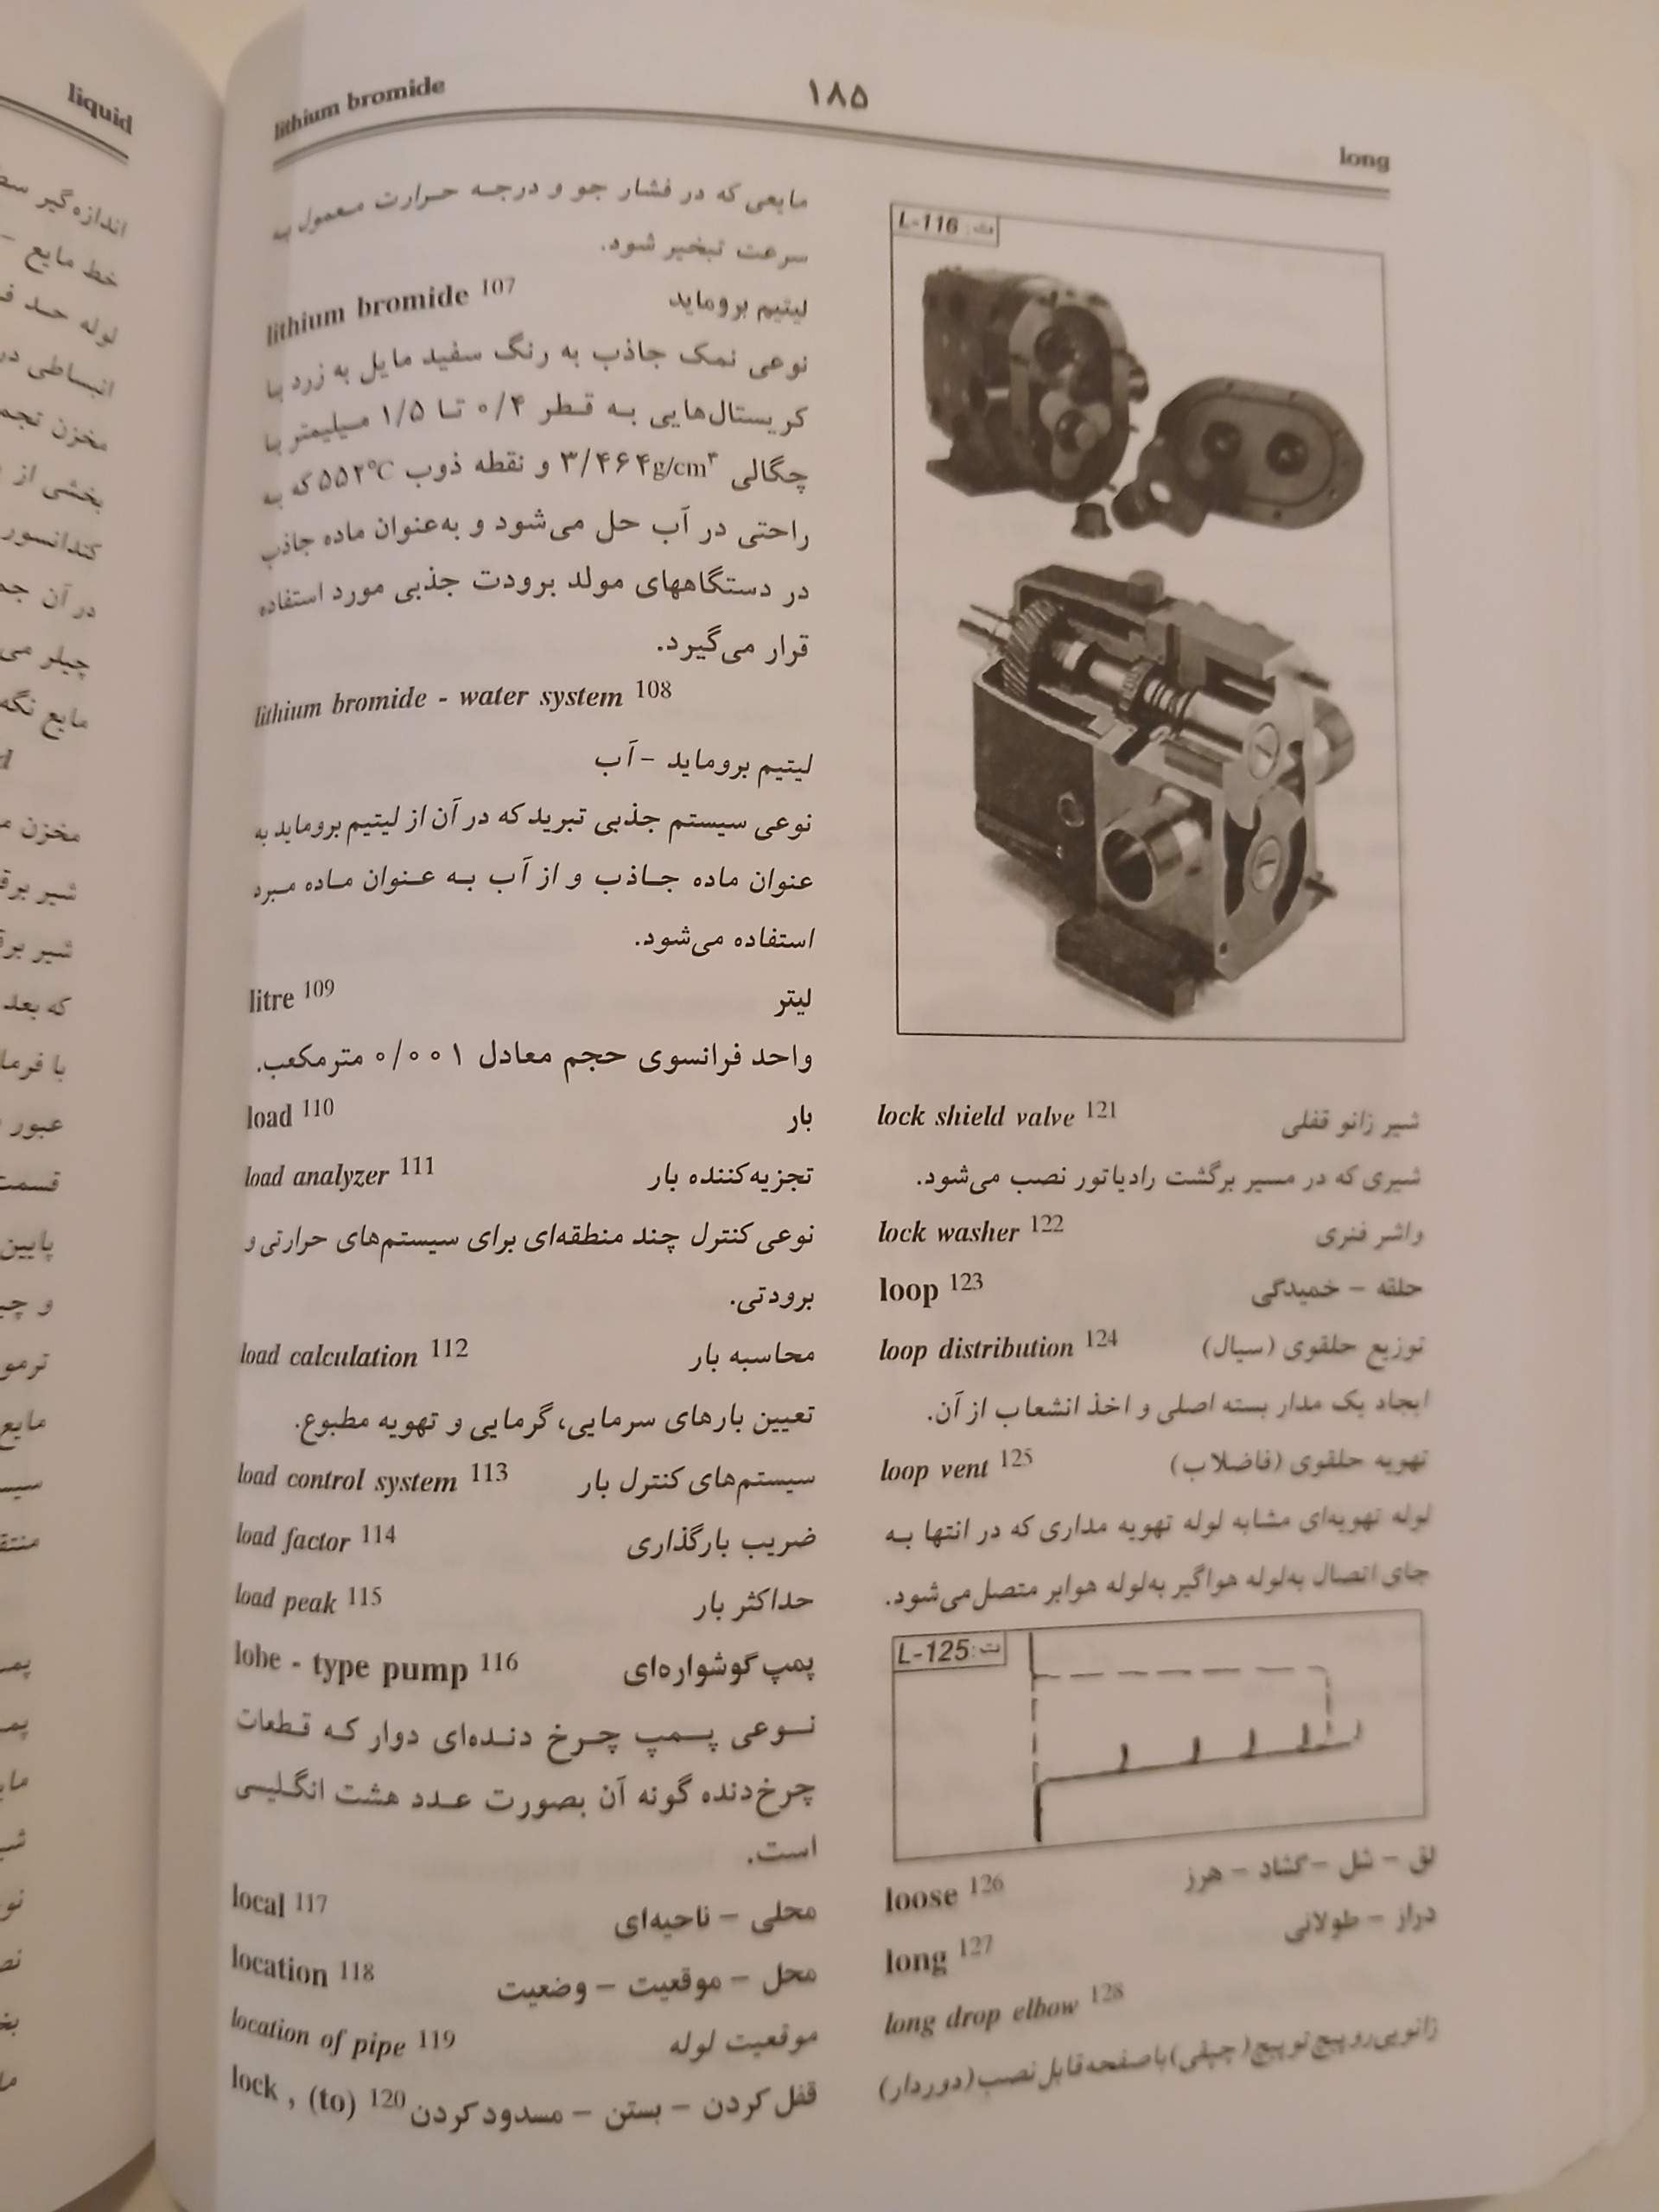 liquid
اندازه‌گیر
خط مایع –
لوله حد
انبساطی در
مخزن
بخشی از
کندانسور
در آن
چیلر می
مایع
مخزن
شیر
شیر
که بعد
با
عبور
پایین
مایع
lithium bromide
۱۸۵
long
مایعی که در فشار جو و درجه حرارت معمول به
سرعت تبخیر شود.
lithium bromide 107 لیتیم بروماید
نوعی نمک جاذب به رنگ سفید مایل به زرد با
کریستال‌هایی به قطر ۰/۴ تا ۱/۵ میلیمتر با
چگالی ۳/۴۶۴g/cm۳ و نقطه ذوب ۵۵۲°C که به
راحتی در آب حل می‌شود و به‌عنوان ماده جاذب
در دستگاههای مولد برودت جذبی مورد استفاده
قرار می‌گیرد.
lithium bromide - water system 108
لیتیم بروماید – آب
نوعی سیستم جذبی تبرید که در آن از لیتیم بروماید به
عنوان ماده جاذب و از آب به عنوان ماده مبرد
استفاده می‌شود.
litre 109 لیتر
واحد فرانسوی حجم معادل ۰/۰۰۱ مترمکعب.
load 110 بار
load analyzer 111 تجزیه‌کننده بار
نوعی کنترل چند منطقه‌ای برای سیستم‌های حرارتی و
برودتی.
load calculation 112 محاسبه بار
تعیین بارهای سرمایی، گرمایی و تهویه مطبوع.
load control system 113 سیستم‌های کنترل بار
load factor 114 ضریب بارگذاری
load peak 115 حداکثر بار
lobe - type pump 116 پمپ گوشواره‌ای
نوعی پمپ چرخ دنده‌ای دوار که قطعات
چرخ‌دنده گونه آن بصورت عدد هشت انگلیسی
است.
local 117 محلی – ناحیه‌ای
location 118 محل – موقعیت – وضعیت
location of pipe 119 موقعیت لوله
lock , (to) 120 قفل کردن – بستن – مسدود کردن
ت: L-116
lock shield valve 121 شیر زانو قفلی
شیری که در مسیر برگشت رادیاتور نصب می‌شود.
lock washer 122 واشر فنری
loop 123 حلقه – خمیدگی
loop distribution 124 توزیع حلقوی (سیال)
ایجاد یک مدار بسته اصلی و اخذ انشعاب از آن.
loop vent 125 تهویه حلقوی (فاضلاب)
لوله تهویه‌ای مشابه لوله تهویه مداری که در انتها به
جای اتصال به‌لوله هواگیر به‌لوله هوابر متصل می‌شود.
ت: L-125
loose 126 لق – شل – گشاد – هرز
long 127 دراز – طولانی
long drop elbow 128
زانویی رو پیچ تو پیچ (چپقی) با صفحه قابل نصب (دوردار)